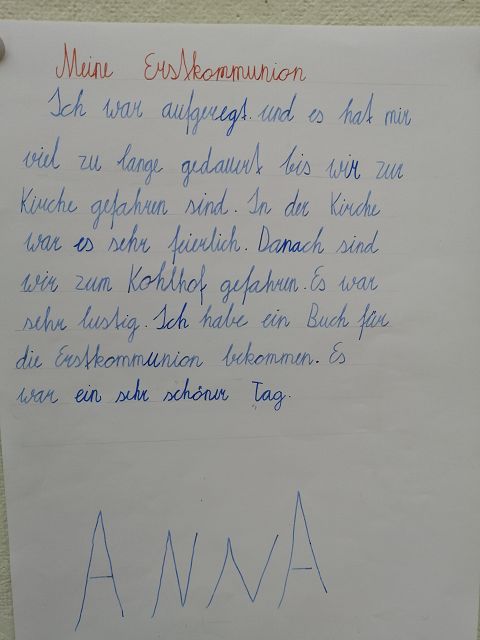 Meine Erstkommunion
Ich war aufgeregt und es hat mir
viel zu lange gedauert bis wir zur
Kirche gefahren sind. In der Kirche
war es sehr feierlich. Danach sind
wir zum Kohlhof gefahren. Es war
sehr lustig. Ich habe ein Buch für
die Erstkommunion bekommen. Es
war ein sehr schöner Tag.
ANNA